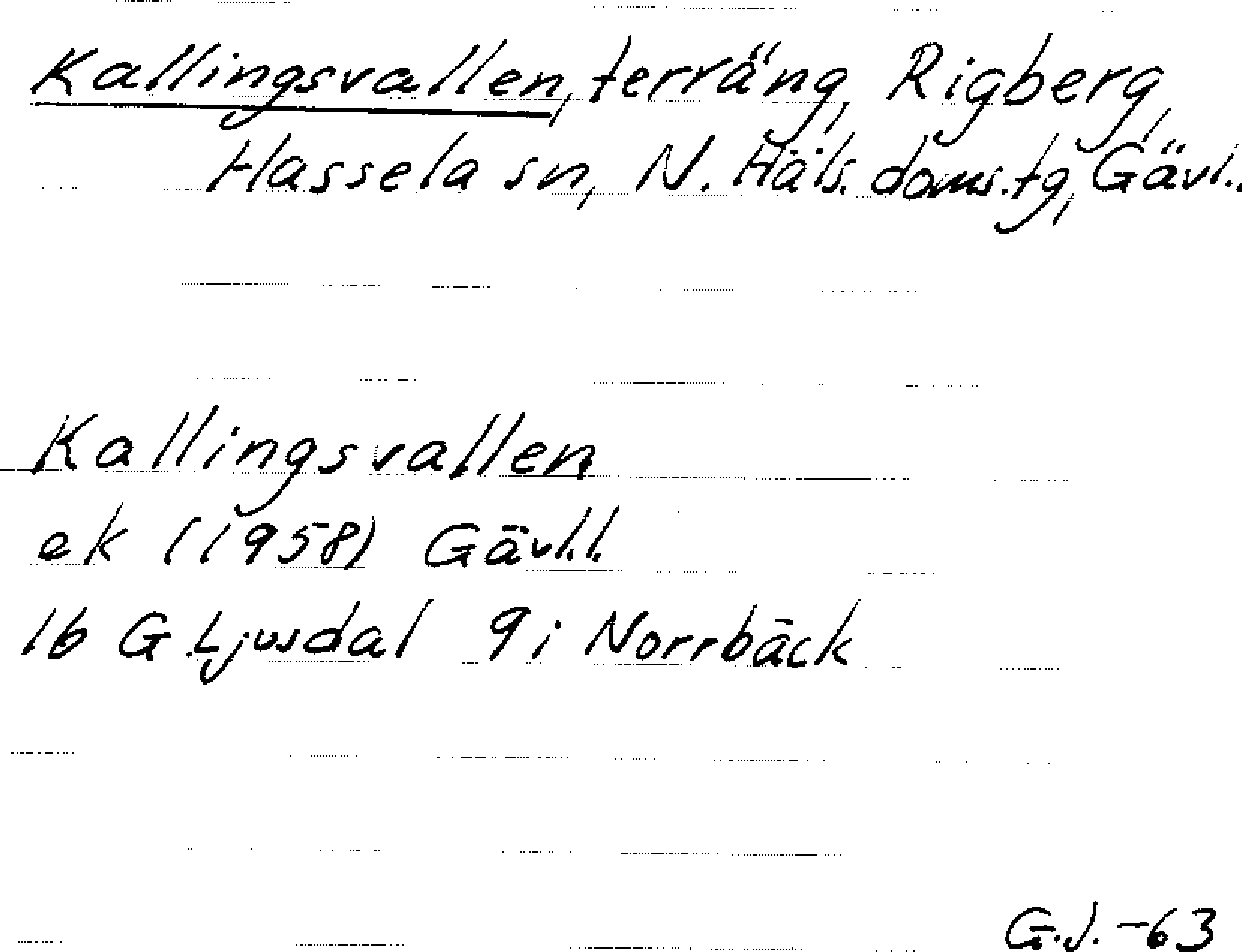 Kallingsvallen, terräng, Rigberg,
Hassela sn, N. Häls. doms.tg, Gävl..
Kallingsvallen
ek (1958) Gävl.l.
16 G Ljusdal 9i Norrbäck
G.J. -63